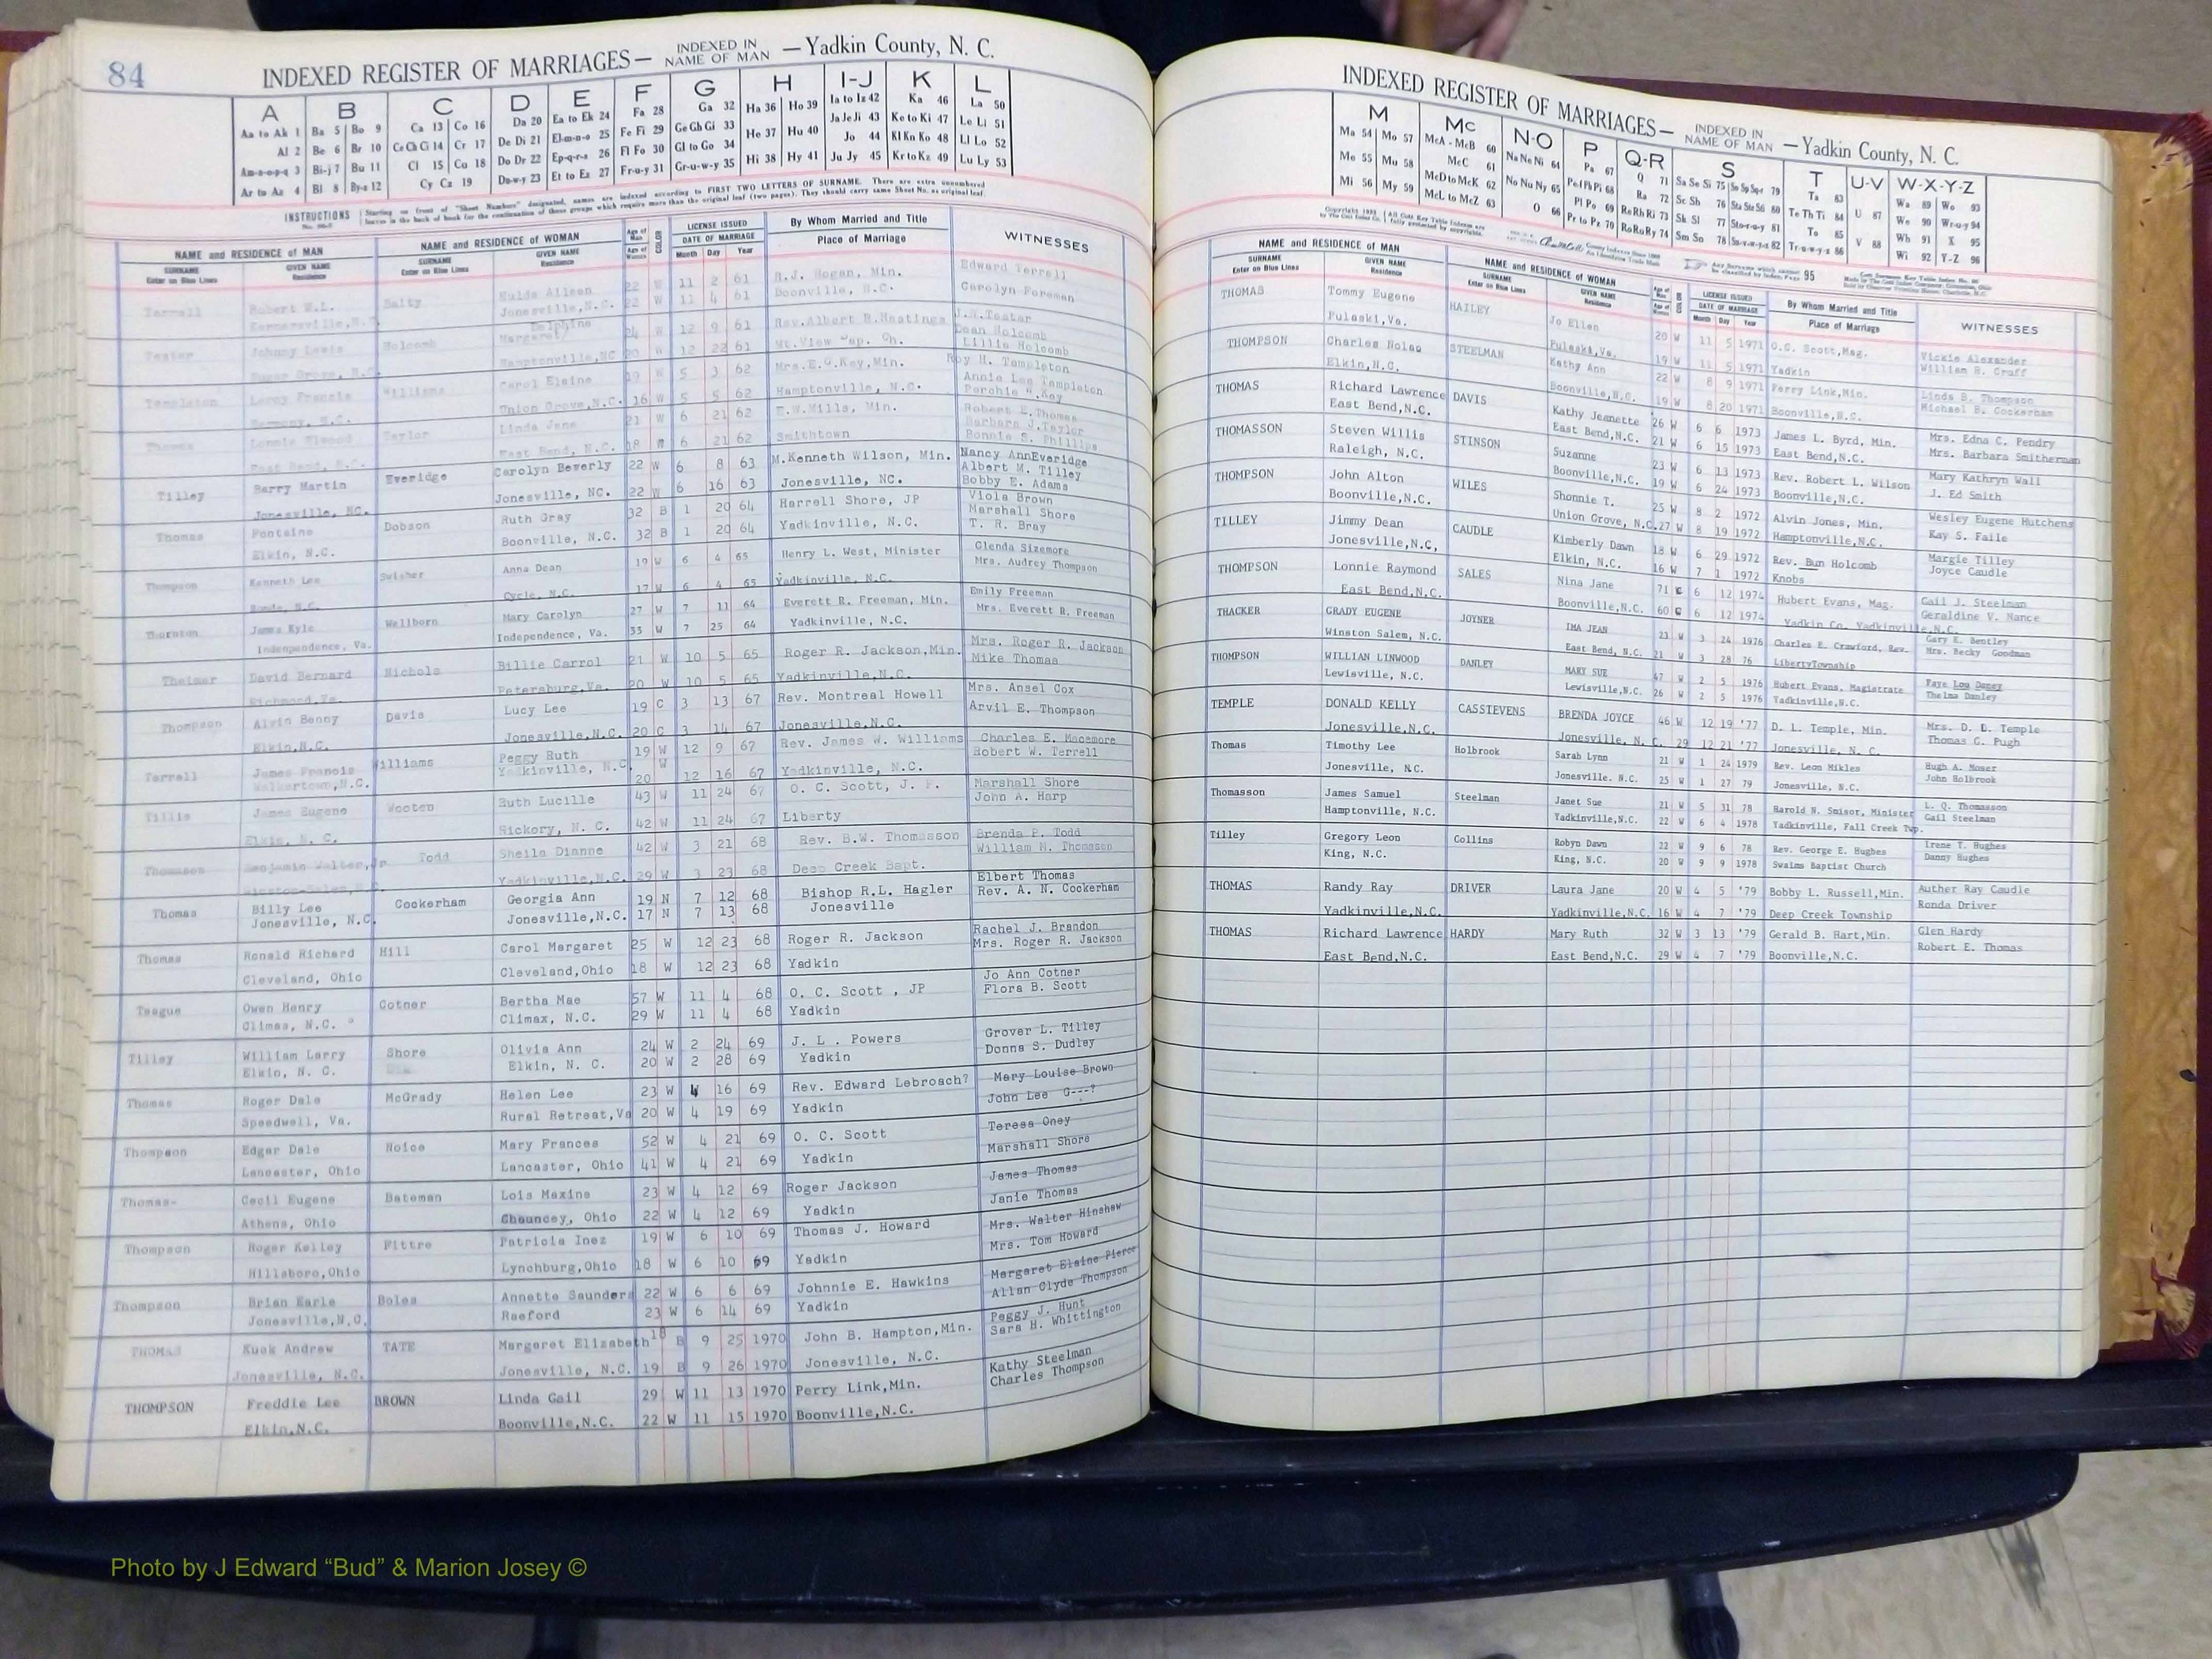 84
INDEXED REGISTER OF MARRIAGES— INDEXED IN NAME OF MAN —Yadkin County, N. C.
A B C D E F G H I-J K L
Aa to Ak 1 Ba 5 Bo 9 Ca 13 Co 16 Da 20 Ea to Ek 24 Fa 28 Ga 32 Ha 36 Ho 39 Ia to Iz 42 Ka 46 La 50
Al 2 Be 6 Br 10 Ce Ch Ci 14 Cr 17 De Di 21 El-m-n-o 25 Fe Fi 29 Ge Gh Gi 33 He 37 Hu 40 Ja Je Ji 43 Ke to Ki 47 Le Li 51
Am-n-o-p-q 3 Bi-j 7 Bu 11 Cl 15 Cu 18 Do Dr 22 Ep-q-r-s 26 Fl Fo 30 Gl to Go 34 Hi 38 Hy 41 Jo 44 Kl Kn Ko 48 Ll Lo 52
Ar to Az 4 Bl 8 By-z 12 Cy Cz 19 Du-w-y 23 Et to Ez 27 Fr-u-y 31 Gr-u-w-y 35 Ju Jy 45 Kr to Kz 49 Lu Ly 53
INSTRUCTIONS
NAME and RESIDENCE OF MAN NAME and RESIDENCE OF WOMAN LICENSE ISSUED By Whom Married and Title WITNESSES
SURNAME GIVEN NAME SURNAME GIVEN NAME DATE OF MARRIAGE Place of Marriage
Enter on Blue Lines Residence Enter on Blue Lines Residence Month Day Year
Terrell Robert W.L. Salty Hulda Aileen 22 W 11 2 61 R.J. Hogan, Min. Edward Terrell
Kernersville,N.C. Jonesville,N.C. 22 W 11 4 61 Boonville, N.C. Carolyn Foreman
Teater Johnny Lewis Holcomb Margaret Delphine 24 W 12 9 61 Rev.Albert R.Hastings J.H.Teater Dean Holcomb
Sugar Grove, N.C. Hamptonville,NC 20 W 12 22 61 Mt.View Bap. Ch. Lillie Holcomb
Templeton Leroy Francis Williams Carol Elaine 19 W 5 3 62 Mrs.E.G.Key,Min. Roy H. Templeton
Harmony, N.C. Union Grove,N.C. 16 W 5 5 62 Hamptonville, N.C. Annie Lee Templeton
Thomas Lonnie Elwood Taylor Linda Jane 21 W 6 21 62 E.W.Mills, Min. Robert E.Thomas Barbara J.Taylor
East Bend, N.C. East Bend, N.C. 18 W 6 21 62 Smithtown Bonnie S. Phillips
Tilley Barry Martin Everidge Carolyn Beverly 22 W 6 8 63 M.Kenneth Wilson, Min. Nancy AnnEveridge Albert M. Tilley
Jonesville, NC. Jonesville, NC. 22 W 6 16 63 Jonesville, NC. Bobby E. Adams
Thomas Fontaine Dobson Ruth Gray 32 B 1 20 64 Harrell Shore, JP Viola Brown Marshall Shore
Elkin, N.C. Boonville, N.C. 32 B 1 20 64 Yadkinville, N.C. T. R. Bray
Thompson Kenneth Lee Swisher Anna Dean 19 W 6 4 65 Henry L. West, Minister Glenda Sizemore
Ronda, N.C. Cycle, N.C. 17 W 6 4 65 Yadkinville, N.C. Mrs. Audrey Thompson
Thornton James Kyle Wellborn Mary Carolyn 27 W 7 11 64 Everett R. Freeman, Min. Emily Freeman
Independence, Va. Independence, Va. 33 W 7 25 64 Yadkinville, N.C. Mrs. Everett R. Freeman
Theimer David Bernard Nichols Billie Carrol 21 W 10 5 65 Roger R. Jackson,Min. Mrs. Roger R. Jackson
Richmond,Va. Petersburg,Va. 20 W 10 5 65 Yadkinville,N.C. Mike Thomas
Thompson Alvin Benny Davis Lucy Lee 19 C 3 13 67 Rev. Montreal Howell Mrs. Ansel Cox
Elkin,N.C. Jonesville,N.C. 20 C 3 14 67 Jonesville,N.C. Arvil E. Thompson
Terrell James Francis Williams Peggy Ruth 19 W 12 9 67 Rev. James W. Williams Charles E. Macemore
Walkertown,N.C. Yadkinville, N.C. 20 W 12 16 67 Yadkinville, N.C. Robert W. Terrell
Tillis James Eugene Wooten Ruth Lucille 43 W 11 24 67 O. C. Scott, J. P. Marshall Shore
Elkin, N. C. Hickory, N. C. 42 W 11 24 67 Liberty John A. Harp
Thomason Benjamin Walter,Jr Todd Sheila Dianne 42 W 3 21 68 Rev. B.W. Thomasson Brenda P. Todd
Winston-Salem,N.C. Yadkinville,N.C. 29 W 3 23 68 Deep Creek Bapt. William H. Thomason
Thomas Billy Lee Cockerham Georgia Ann 19 N 7 12 68 Bishop R.L. Hagler Elbert Thomas
Jonesville, N.C. Jonesville,N.C. 17 N 7 13 68 Jonesville Rev. A. N. Cockerham
Thomas Ronald Richard Hill Carol Margaret 25 W 12 23 68 Roger R. Jackson Rachel J. Brandon
Cleveland, Ohio Cleveland,Ohio 18 W 12 23 68 Yadkin Mrs. Roger R. Jackson
Teague Owen Henry Cotner Bertha Mae 57 W 11 4 68 O. C. Scott , JP Jo Ann Cotner
Climax, N.C. Climax, N.C. 29 W 11 4 68 Yadkin Flora B. Scott
Tilley William Larry Shore Olivia Ann 24 W 2 24 69 J. L . Powers Grover L. Tilley
Elkin, N. C. Elkin, N. C. 20 W 2 28 69 Yadkin Donna S. Dudley
Thomas Roger Dale McGrady Helen Lee 23 W 4 16 69 Rev. Edward Lebroach? Mary Louise Brown
Speedwell, Va. Rural Retreat,Va 20 W 4 19 69 Yadkin John Lee G---?
Thompson Edgar Dale Noice Mary Frances 52 W 4 21 69 O. C. Scott Teresa Oney
Lancaster, Ohio Lancaster, Ohio 41 W 4 21 69 Yadkin Marshall Shore
Thomas- Cecil Eugene Bateman Lois Maxine 23 W 4 12 69 Roger Jackson James Thomas
Athens, Ohio Chauncey, Ohio 22 W 4 12 69 Yadkin Janie Thomas
Thompson Roger Kelley Fittro Patricia Inez 19 W 6 10 69 Thomas J. Howard Mrs. Walter Hinshaw
Hillsboro,Ohio Lynchburg,Ohio 18 W 6 10 69 Yadkin Mrs. Tom Howard
Thompson Brian Earle Boles Annette Saunders 22 W 6 6 69 Johnnie E. Hawkins Margaret Elaine Pierce
Jonesville,N.C. Raeford 23 W 6 14 69 Yadkin Allan Clyde Thompson
THOMAS Kuok Andrew TATE Margaret Elizabeth 18 B 9 25 1970 John B. Hampton,Min. Peggy J. Hunt
Jonesville, N.C. Jonesville, N.C. 19 B 9 26 1970 Jonesville, N.C. Sara H. Whittington
THOMPSON Freddie Lee BROWN Linda Gail 29 W 11 13 1970 Perry Link,Min. Kathy Steelman
Elkin,N.C. Boonville,N.C. 22 W 11 15 1970 Boonville,N.C. Charles Thompson
INDEXED REGISTER OF MARRIAGES— INDEXED IN NAME OF MAN —Yadkin County, N. C.
M Mc N-O P Q-R S T U-V W-X-Y-Z
Ma 54 Mo 57 McA - McB 60 Na Ne Ni 64 Pa 67 Q 71 Sa Se Si 75 So Sp Sq-r 79 Ta 83 U 87 Wa 89 Wo 93
Me 55 Mu 58 McC 61 No Nu Ny 65 Pe Ph Pi 68 Ra 72 Sc Sh 76 Sta Ste Sti 80 Te Th Ti 84 V 88 We 90 Wr-u-y 94
Mi 56 My 59 McD to McK 62 O 66 Pl Po 69 Re Rh Ri 73 Sk Sl 77 Sto-r-u-y 81 To 85 Wh 91 X 95
McL to McZ 63 Pr to Pz 70 Ro Ru Ry 74 Sm Sn 78 Su-v-w-y-z 82 Tr-u-w-y-z 86 Wi 92 Y-Z 96
NAME and RESIDENCE OF MAN NAME and RESIDENCE OF WOMAN LICENSE ISSUED By Whom Married and Title WITNESSES
SURNAME GIVEN NAME SURNAME GIVEN NAME DATE OF MARRIAGE Place of Marriage
Enter on Blue Lines Residence Enter on Blue Lines Residence Month Day Year
THOMAS Tommy Eugene HAILEY Jo Ellen 20 W 11 5 1971 O.C. Scott,Mag. Vickie Alexander
Pulaski,Va. Pulaski,Va. 19 W 11 5 1971 Yadkin William B. Graff
THOMPSON Charles Nolan STEELMAN Kathy Ann 22 W 8 9 1971 Perry Link,Min. Linda B. Thompson
Elkin,N.C. Boonville,N.C. 19 W 8 20 1971 Boonville,N.C. Michael E. Cockerham
THOMAS Richard Lawrence DAVIS Kathy Jeanette 26 W 6 6 1973 James L. Byrd, Min. Mrs. Edna C. Pendry
East Bend,N.C. East Bend,N.C. 21 W 6 15 1973 East Bend,N.C. Mrs. Barbara Smitherman
THOMASSON Steven Willis STINSON Suzanne 23 W 6 13 1973 Rev. Robert L. Wilson Mary Kathryn Wall
Raleigh, N.C. Boonville,N.C. 19 W 6 24 1973 Boonville,N.C. J. Ed Smith
THOMPSON John Alton WILES Shonnie T. 25 W 8 2 1972 Alvin Jones, Min. Wesley Eugene Hutchens
Boonville,N.C. Union Grove, N.C. 27 W 8 19 1972 Hamptonville,N.C. Kay S. Faile
TILLEY Jimmy Dean CAUDLE Kimberly Dawn 18 W 6 29 1972 Rev. Bun Holcomb Margie Tilley
Jonesville,N,C, Elkin, N.C. 16 W 7 1 1972 Knobs Joyce Caudle
THOMPSON Lonnie Raymond SALES Nina Jane 71 C 6 12 1974 Hubert Evans, Mag. Gail J. Steelman
East Bend,N.C. Boonville,N.C. 60 C 6 12 1974 Yadkin Co. Yadkinville,N.C. Geraldine V. Nance
THACKER GRADY EUGENE JOYNER IMA JEAN 23 W 3 24 1976 Charles E. Crawford, Rev. Gary E. Bentley
Winston Salem, N.C. East Bend, N.C. 21 W 3 28 76 LibertyTownship Mrs. Becky Goodman
THOMPSON WILLIAN LINWOOD DANLEY MARY SUE 47 W 2 5 1976 Hubert Evans, Magistrate Faye Lou Davey
Lewisville, N.C. Lewisville,N.C. 26 W 2 5 1976 Yadkinville,N.C. Thelma Danley
TEMPLE DONALD KELLY CASSTEVENS BRENDA JOYCE 46 W 12 19 '77 D. L. Temple, Min. Mrs. D. L. Temple
Jonesville,N.C. Jonesville, N. C. 29 12 21 '77 Jonesville, N. C. Thomas G. Pugh
Thomas Timothy Lee Holbrook Sarah Lynn 21 W 1 24 1979 Rev. Leon Mikles Hugh A. Moser
Jonesville, N.C. Jonesville. N.C. 25 W 1 27 79 Jonesville, N.C. John Holbrook
Thomasson James Samuel Steelman Janet Sue 21 W 5 31 78 Harold N. Smisor, Minister L. Q. Thomasson
Hamptonville, N.C. Yadkinville,N.C. 22 W 6 4 1978 Yadkinville, Fall Creek Twp. Gail Steelman
Tilley Gregory Leon Collins Robyn Dawn 22 W 9 6 78 Rev. George E. Hughes Irene T. Hughes
King, N.C. King, N.C. 20 W 9 9 1978 Swaims Baptist Church Danny Hughes
THOMAS Randy Ray DRIVER Laura Jane 20 W 4 5 '79 Bobby L. Russell,Min. Auther Ray Caudle
Yadkinville,N.C. Yadkinville,N.C. 16 W 4 7 '79 Deep Creek Township Ronda Driver
THOMAS Richard Lawrence HARDY Mary Ruth 32 W 3 13 '79 Gerald B. Hart,Min. Glen Hardy
East Bend,N.C. East Bend,N.C. 29 W 4 7 '79 Boonville,N.C. Robert E. Thomas
Photo by J Edward “Bud” & Marion Josey ©